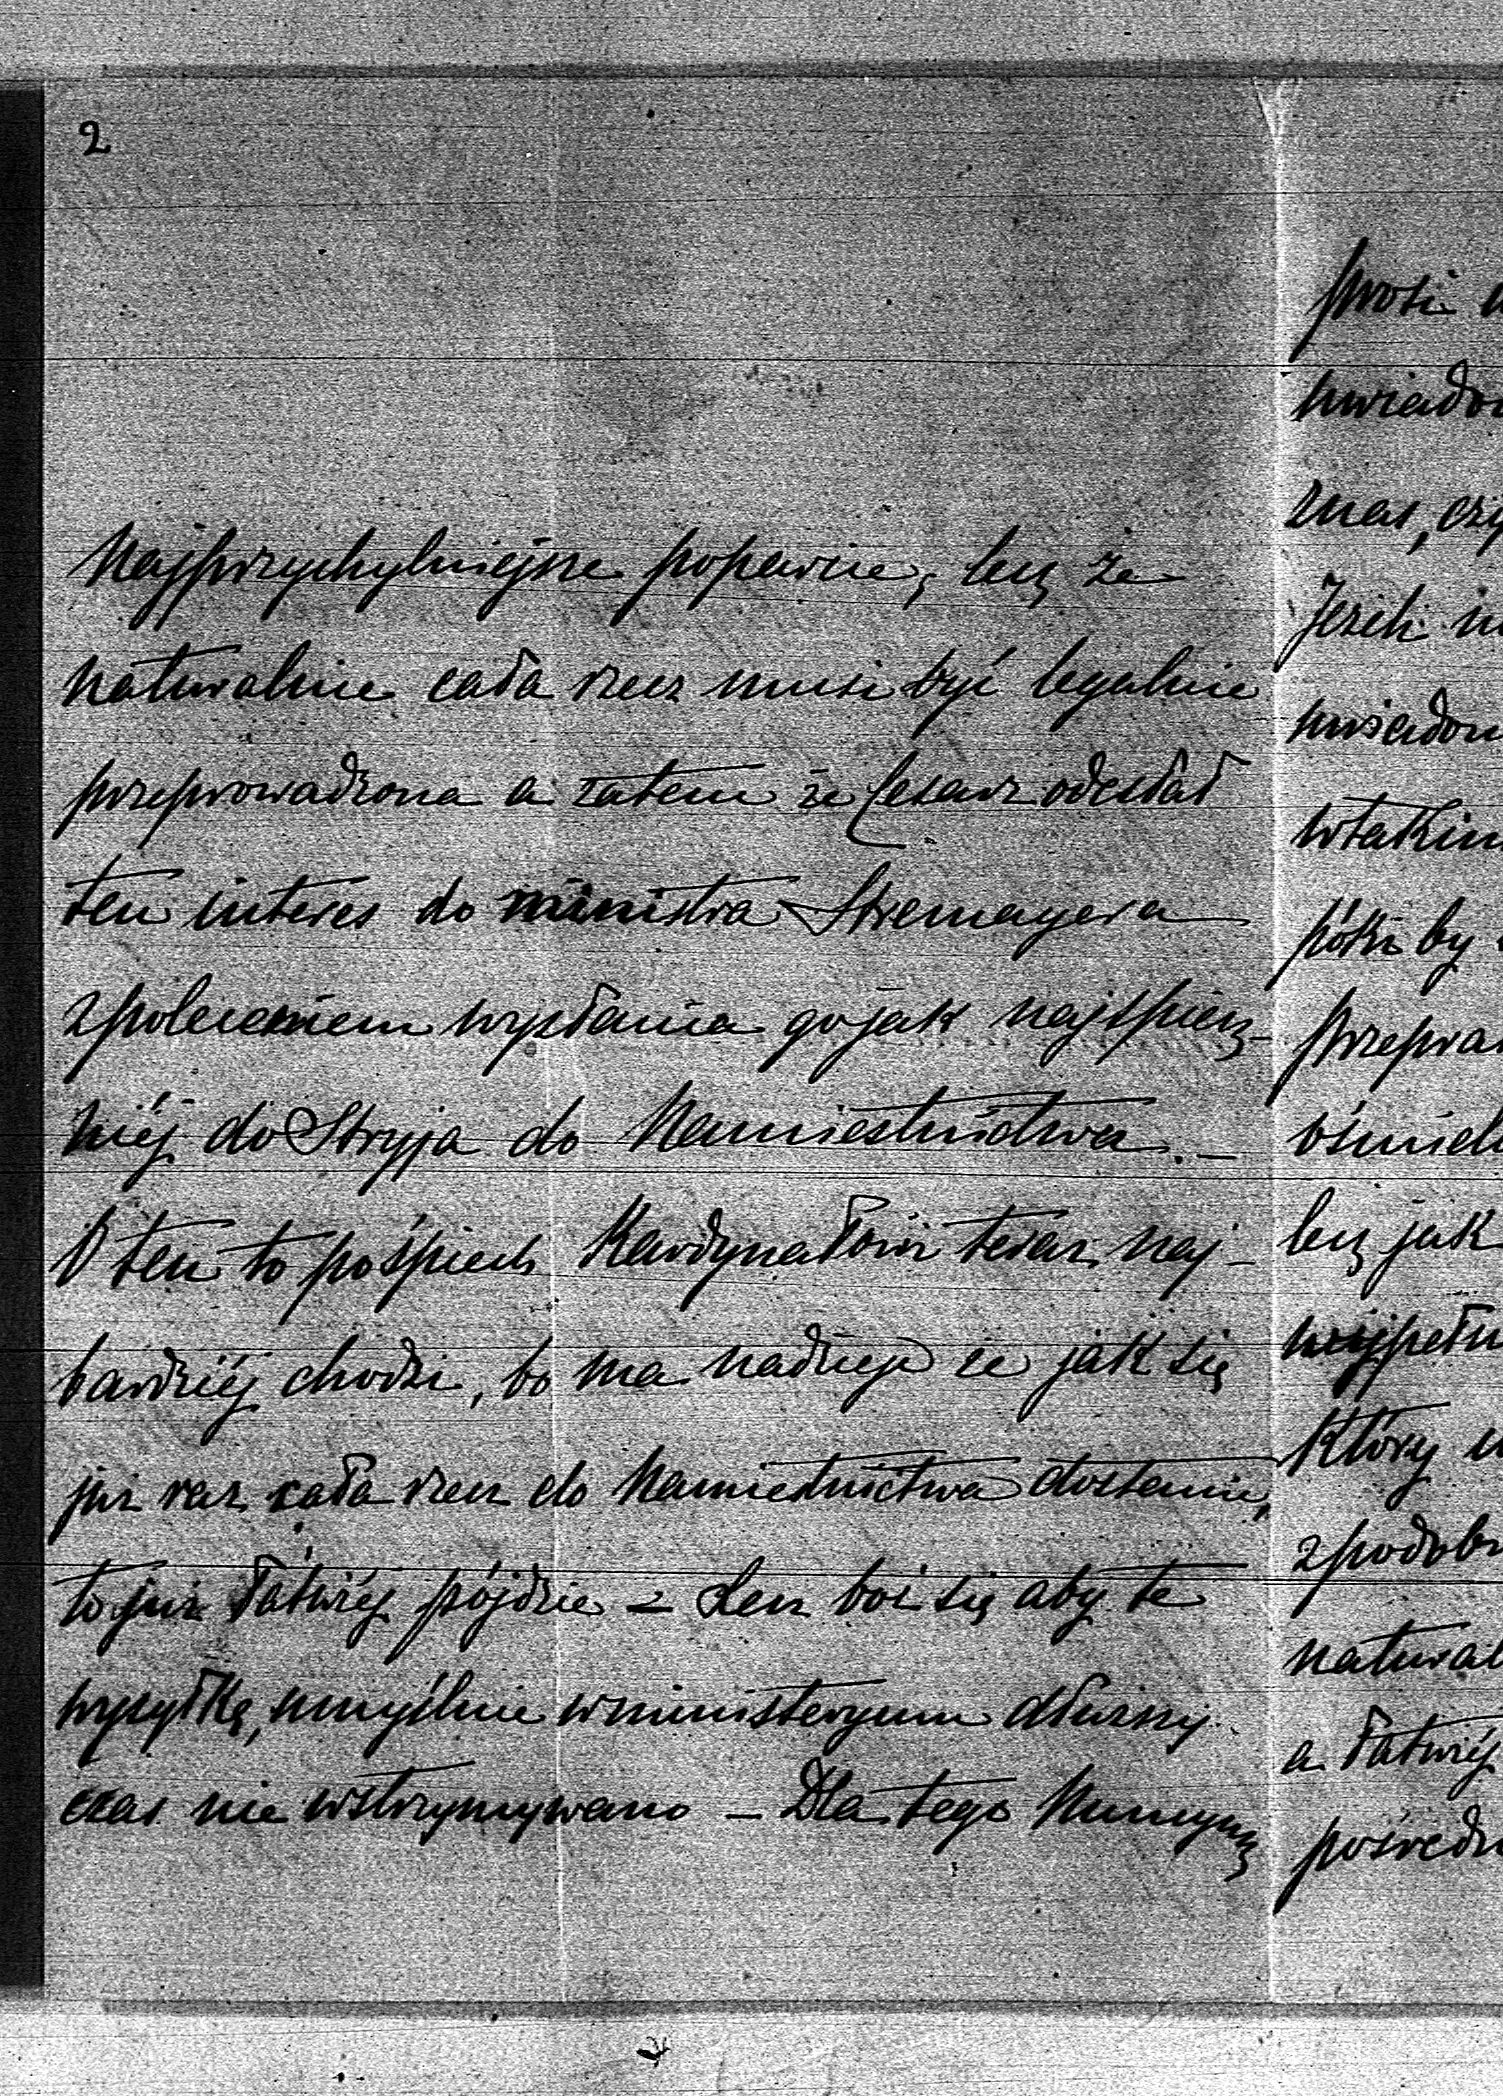 2
najprzychylniejsze poparcie, lecz że
naturalnie cała rzecz musi być legalnie
przeprowadzona a zatem że Cesarz odesłał
ten interes do ministra Stremayera
z poleceniem wysłania go jak najspiesz-
niéj do Stryja do Namiestnictwa. –
O ten to pośpiech Kardynałowi teraz naj-
bardziéj chodzi, bo ma nadzieje że jak się
już raz cała rzecz do Namiestnictwa dostanie,
to już łatwiéj pójdzie – Lecz boi się aby te
wysyłkę, umyślnie w ministeryum dłuższy
czas nie wstrzymywano – Dla tego
prosi
znas, czy
Jeżeli
w takim
póki by
lecz jak
który
natural
a łatwiéj